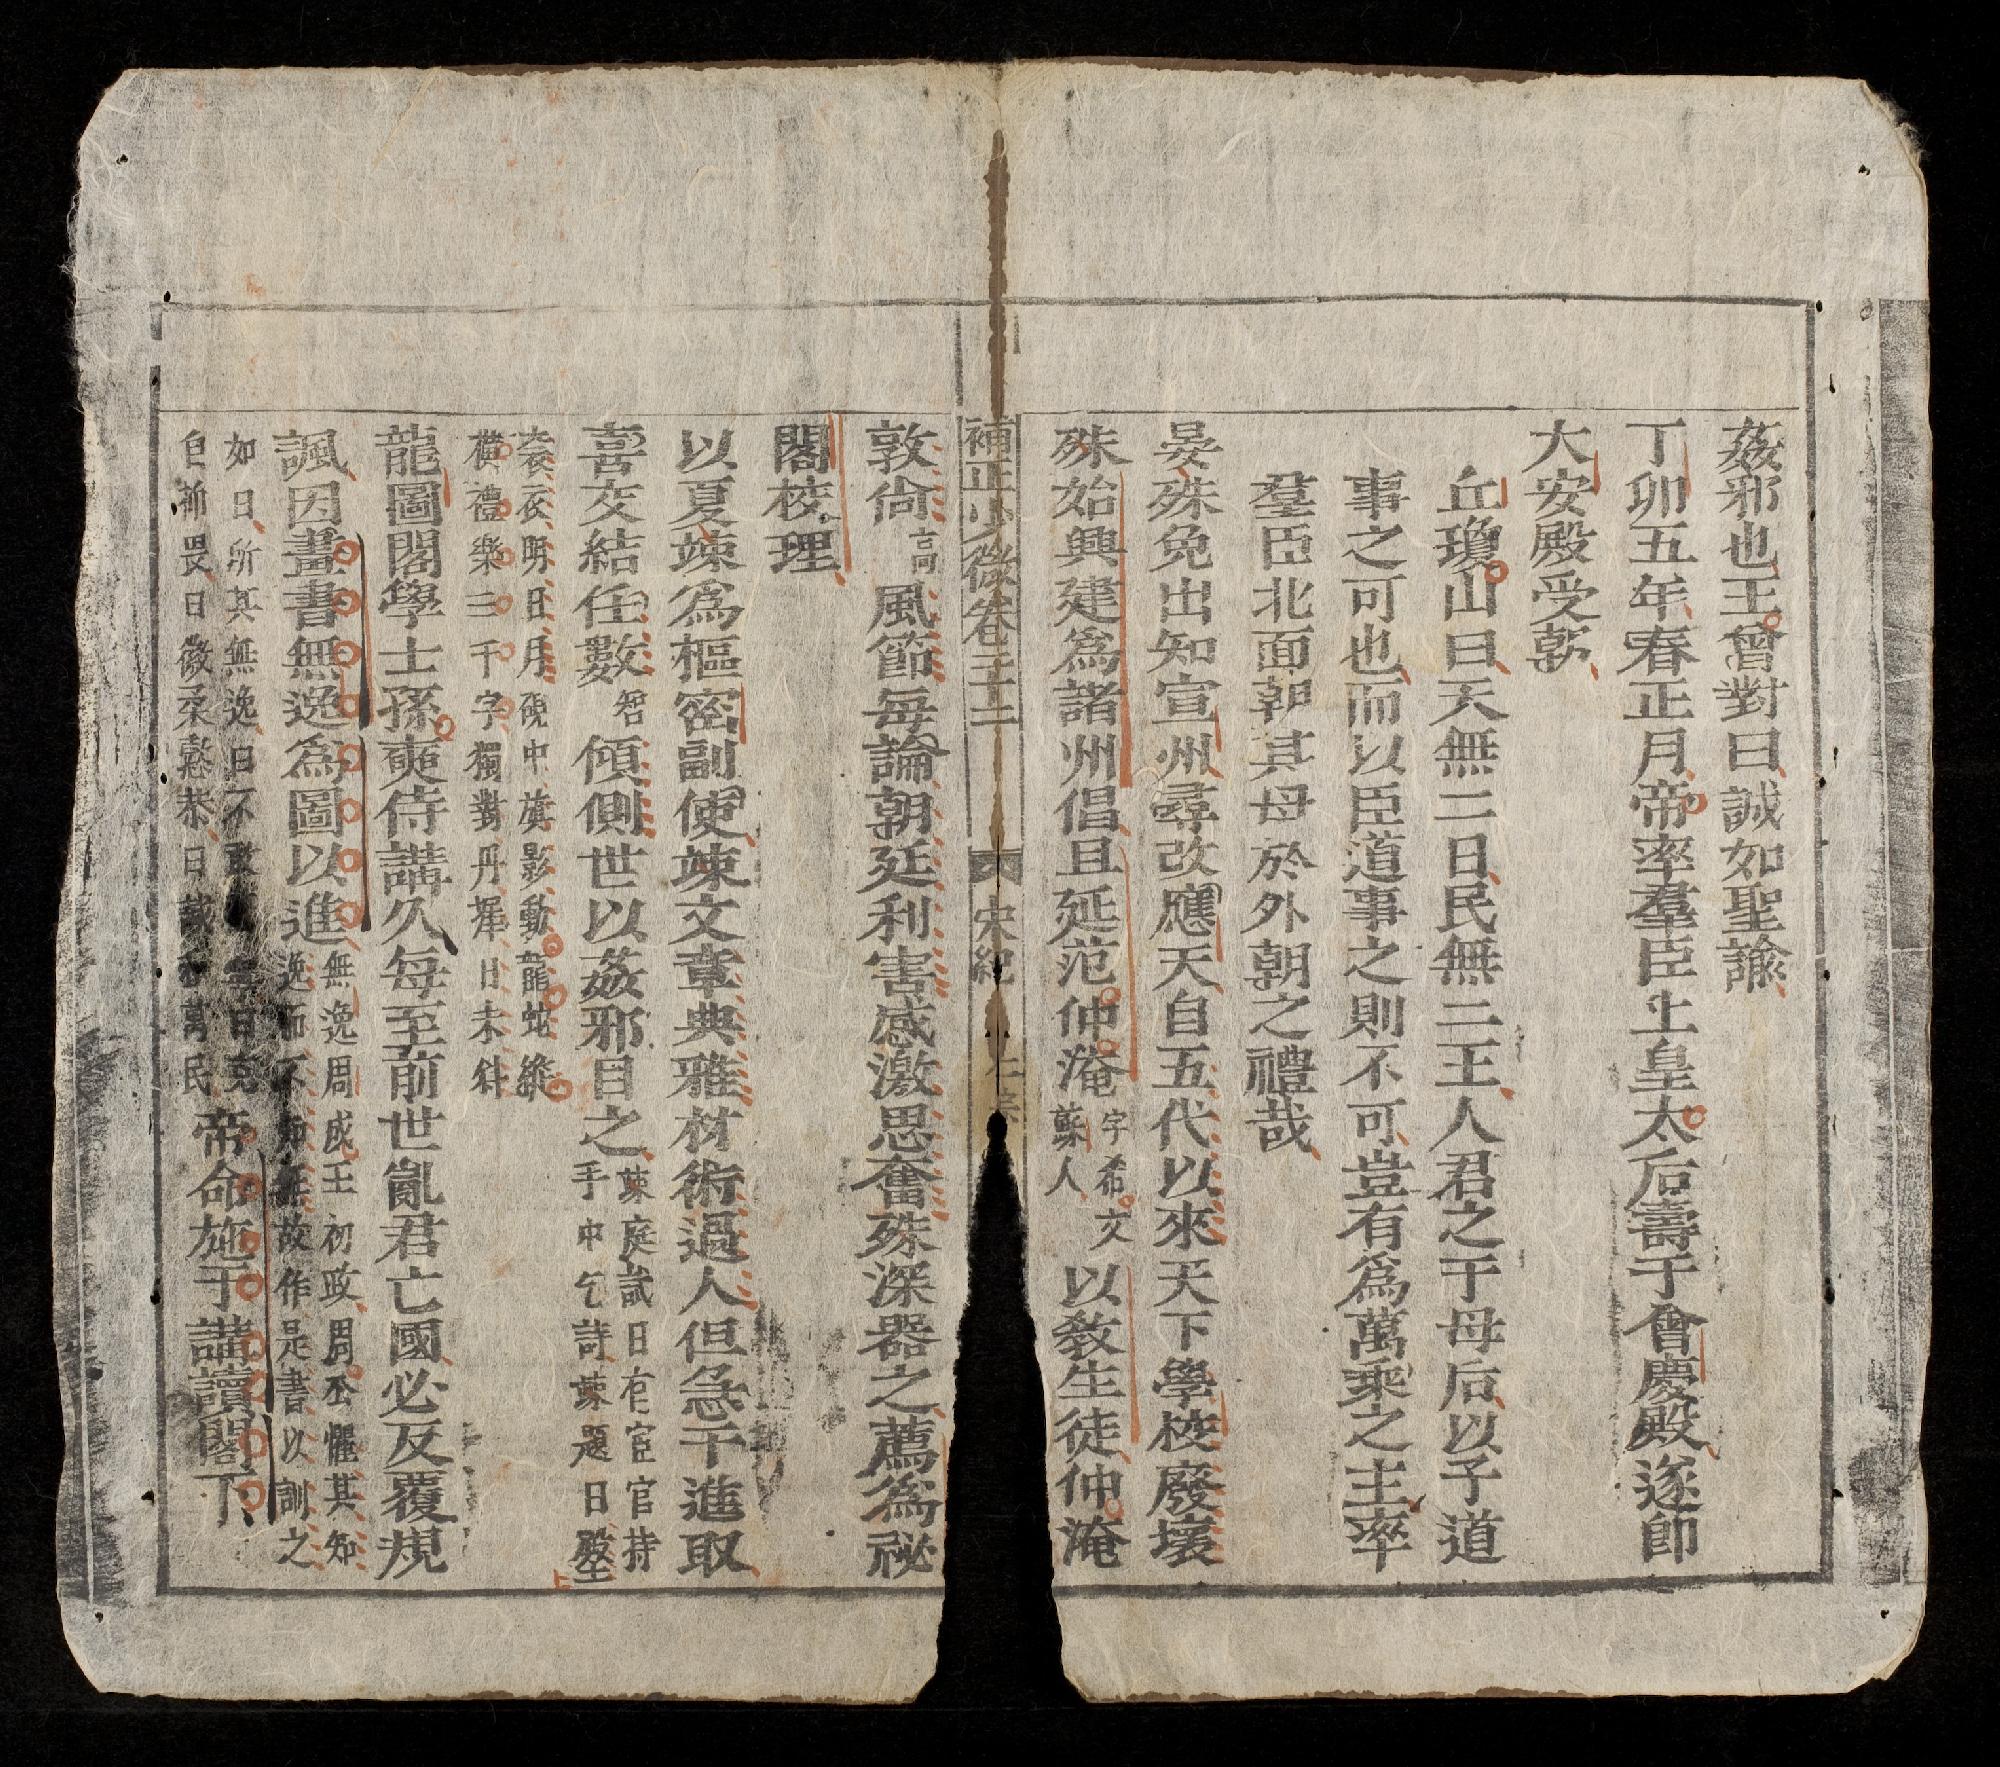 姦邪也王曾對曰誠如聖諭
丁卯五年春正月帝率羣臣上皇太后壽于會慶殿遂卽
大安殿受朝
丘瓊山曰天無二日民無二王人君之于母后以子道
事之可也而以臣道事之則不可豈有爲萬乘之主率
羣臣北面朝其母於外朝之禮哉
晏殊免出知宣州尋改應天自五代以來天下學校廢壞
殊始興建爲諸州倡且延范仲淹字希文蘇人以敎生徒仲淹
補正少微卷二十二 宋紀
敦尙高風節每論朝廷利害感激思奮殊深器之薦爲祕
閣校理
以夏竦爲樞密副使竦文章典雅材術過人但急于進取
喜交結任數智傾側世以姦邪目之竦庭試日有宦官持
手中乞詩竦題曰殿上
袞衣明日月硯中旗影動龍蛇縱
橫禮樂三千字獨對丹墀日未斜
龍圖閣學士孫奭侍講久每至前世亂君亡國必反覆規
諷因畫書無逸爲圖以進無逸周成王初政周公懼其知
逸而不知無故作是書以訓之
如日所其無逸曰不敢
自祈畏曰徽柔懿恭曰諴和萬民帝命施于講讀閣下